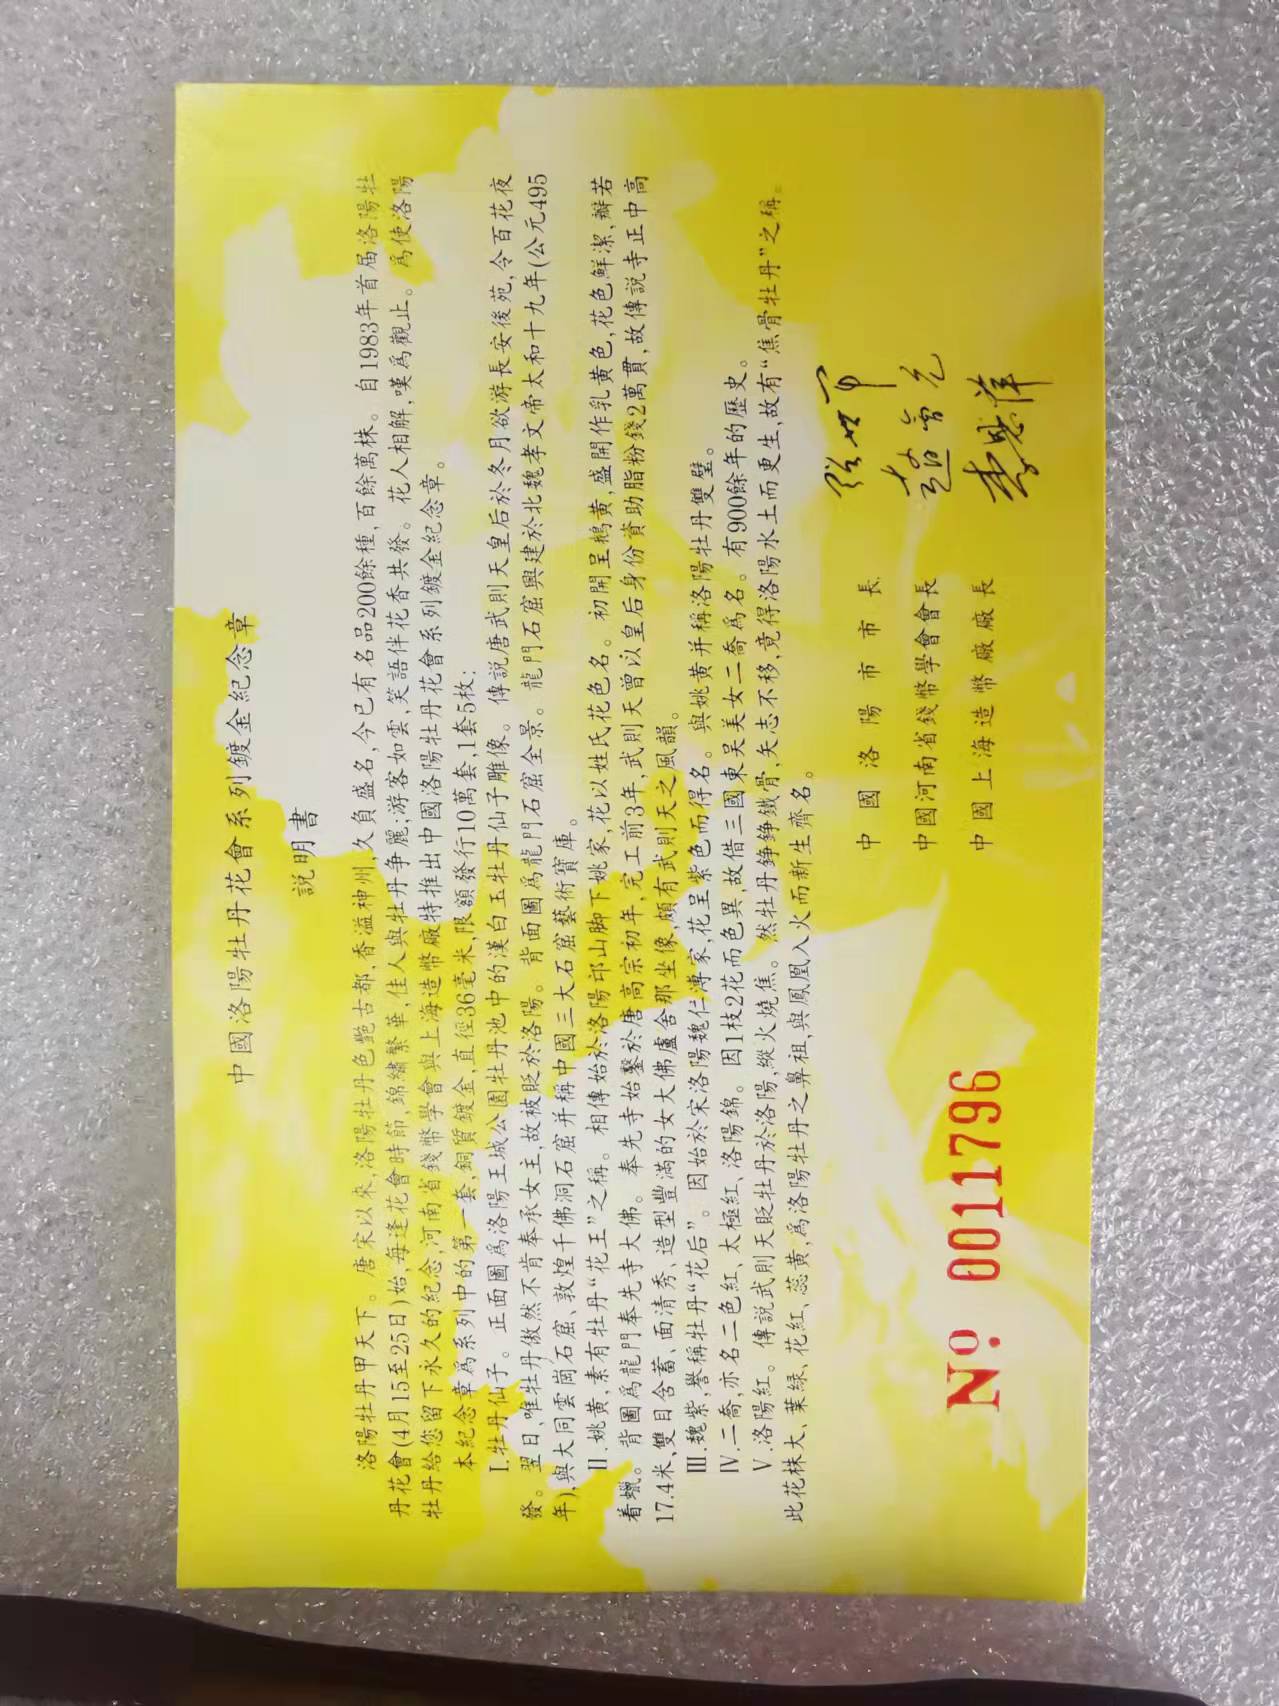 中國洛陽牡丹花會系列鍍金紀念章
説明書
洛陽牡丹甲天下。唐宋以來,洛陽牡丹色艷古都,香溢神州,久負盛名,今已有名品200餘種,百餘萬株。自1983年首届洛陽牡
丹花會(4月15至25日)始,每逢花會時節,錦繡繁華,佳人與牡丹争麗;游客如雲,笑語伴花香共發。花人相解,嘆爲觀止。爲使洛陽
牡丹給您留下永久的紀念,河南省錢幣學會與上海造幣廠特推出中國洛陽牡丹花會系列鍍金紀念章。
本紀念章爲系列中的第一套,銅質鍍金,直徑36毫米,限額發行10萬套,1套5枚:
I.牡丹仙子。正面圖爲洛陽王城公園牡丹池中的漢白玉牡丹仙子雕像。傳説唐武則天皇后於冬月欲游長安後苑,令百花夜
發。翌日,唯牡丹傲然不肯奉承女主,故被貶於洛陽。背面圖爲龍門石窟全景。龍門石窟興建於北魏孝文帝太和十九年(公元495
年),與大同雲崗石窟、敦煌千佛洞石窟并稱中國三大石窟藝術寶庫。
II.姚黄,素有牡丹“花王”之稱。相傳始於洛陽邙山脚下姚家,花以姓氏花色名。初開呈鵝黄,盛開作乳黄色,花色鮮潔,瓣若
着蠟。背圖爲龍門奉先寺大佛。奉先寺始鑿於唐高宗初年,完工前3年,武則天曾以皇后身份資助脂粉錢2萬貫,故傳説寺正中高
17.4米、雙目含蓄、面清秀、造型豐滿的女大佛盧舍那坐像,頗有武則天之風韻。
III.魏紫,譽稱牡丹“花后”。因始於宋洛陽魏仁溥家,花呈紫色而得名。與姚黄并稱洛陽牡丹雙璧。
IV.二喬,亦名二色紅、太極紅、洛陽錦。因1枝2花而色異,故借三國東吴美女二喬爲名。有900餘年的歷史。
V.洛陽紅。傳説武則天貶牡丹於洛陽,縱火燒焦。然牡丹錚錚鐵骨,矢志不移,竟得洛陽水土而更生,故有“焦骨牡丹”之稱。
此花株大、葉緑、花紅、蕊黄,爲洛陽牡丹之鼻祖,與鳳凰入火而新生齊名。
中國洛陽市市長
中國河南省錢幣學會會長 趙會元
中國上海造幣廠廠長 李思祥
No. 0011796